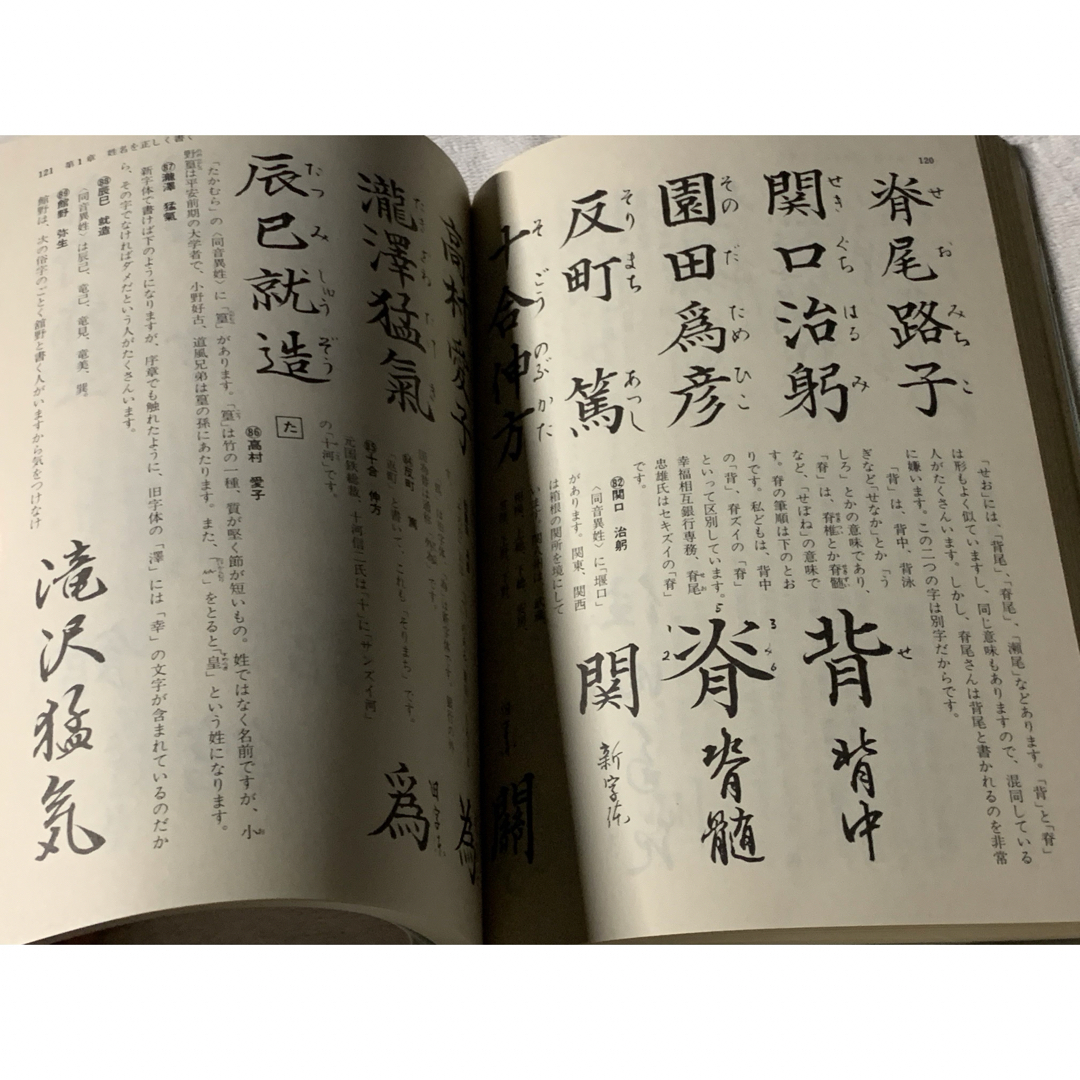 120
脊尾路子
せおみちこ
関口治躬
せきぐちはるみ
園田爲彦
そのだためひこ
反町 篤
そりまち あっし
十合伸方
そごうのぶかた
「せお」には、「背尾」、「脊尾」、「瀬尾」などあります。「背」と「脊」
は形もよく似ていますし、同じ意味もありますので、混同している
人がたくさんいます。しかし、脊尾さんは背尾と書かれるのを非常
に嫌います。この二つの字は別字だからです。
「背」は、背中、背泳
ぎなど「せなか」とか「う
しろ」とかの意味であり、
「脊」は、脊椎とか脊髄
など、「せぼね」の意味で
す。脊の筆順は下のとお
りです。私どもは、背中
の「背」、脊ズイの「脊」
といって区別しています。
幸福相互銀行専務、脊尾
忠雄氏はセキズイの「脊」
です。
背
せ
背中
脊
1 2 3 4 5 6
脊髄
82 関口 治躬
〈同音異姓〉に「堰口」
があります。関東、関西
は箱根の関所を境にして
関
新字体
關
121 第1章 姓名を正しく書く
高村 愛子
瀧澤猛氣
辰巳就造
たつみしゅうぞう
爲
反町 篤
十合 伸方
元国鉄総裁、十河信二氏は「十」に「サンズイ河」
の「十河」です。
た
86 高村 愛子
「たかむら」の〈同音異姓〉に「篁」があります。「篁」は竹の一種、質が堅く節が短いもの。姓ではなく名前ですが、小
野篁は平安前期の大学者で、小野好古、道風兄弟は篁の孫にあたります。また、「⺮」をとると「皇」という姓になります。
87 瀧澤 猛氣
新字体で書けば下のようになりますが、序章でも触れたように、旧字体の「澤」には「幸」の文字が含まれているのだか
ら、その字でなければダメだという人がたくさんいます。
88 辰巳 就造
〈同音異姓〉は辰己、竜己、竜見、竜美、巽。
89 館野 弥生
館野は、次の俗字のごとく舘野と書く人がいますから気をつけなけ
滝沢猛気